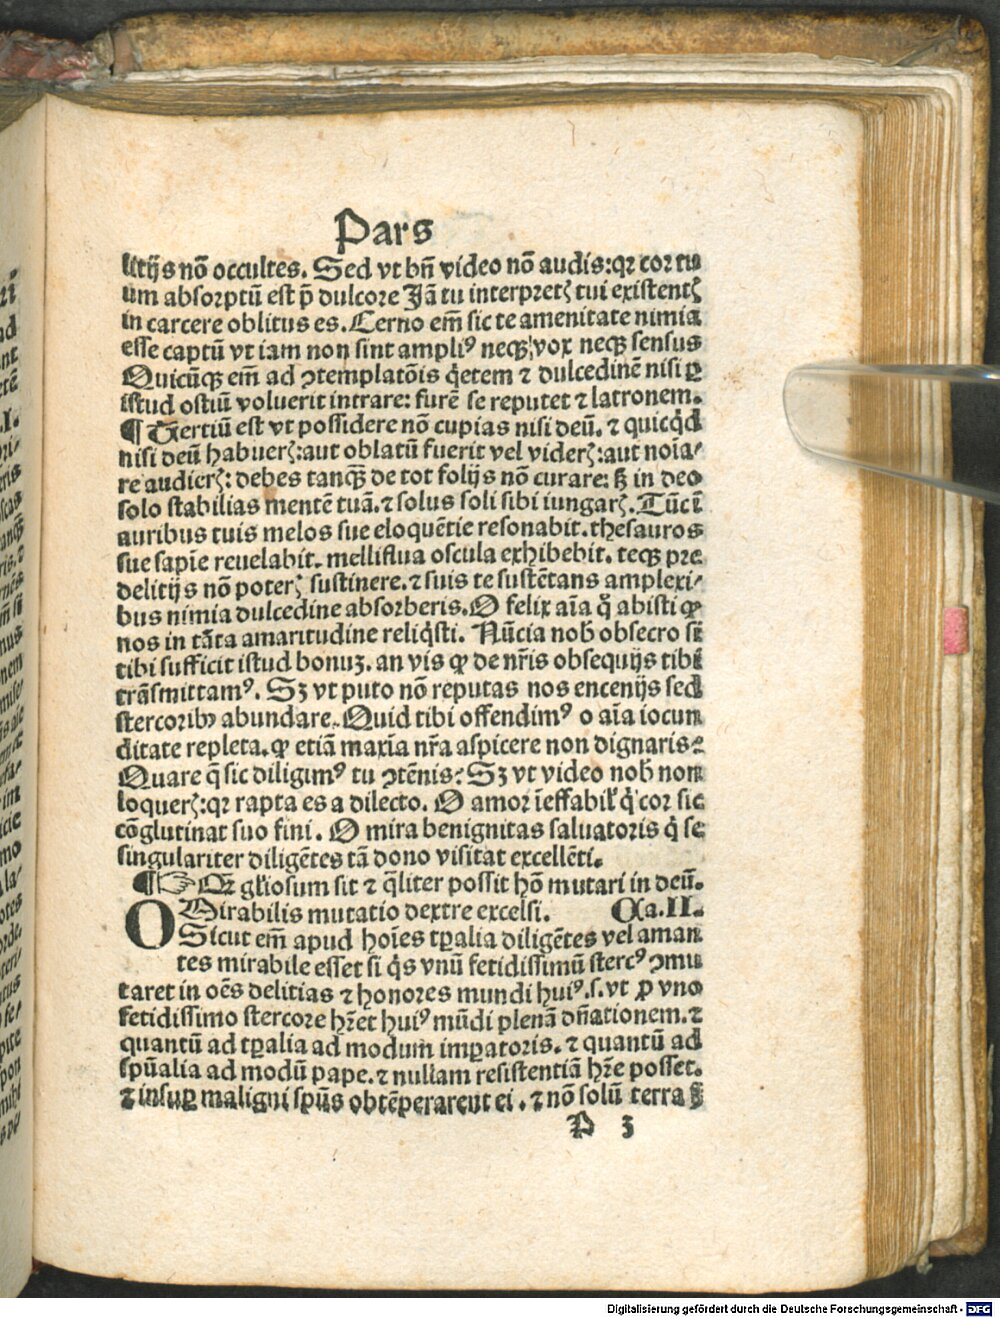 Pars
litijs nō occultes. Sed vt bn̄ video nō audis: qꝛ cor tu
um absorptū est p̄ dulcore Jā tu interpretꝭ tui existentꝭ
in carcere oblitus es. Cerno em̄ sic te amenitate nimia
esse captū vt iam non sint ampliꝰ neqꝫ vox neqꝫ sensus
Quicūqꝫ em̄ ad ↄtemplatōis q̇etem ⁊ dulcedinē nisi ꝑ
istud ostiū voluerit intrare: furē se reputet ⁊ latronem.
¶ Tertiū est vt possidere nō cupias nisi deū. ⁊ quicq̇d
nisi deū habuerꝭ: aut oblatū fuerit vel viderꝭ: aut noīa⸗
re audierꝭ: debes tanqꝫ̄ de tot folijs nō curare: sꝫ in deo
solo stabilias mentē tuā. ⁊ solus soli sibi iungarꝭ. Tūc ī
auribus tuis melos sue eloquētie resonabit. thesauros
sue sapīe reuelabit. melliflua oscula exhibebit. teqꝫ pre
delitijs nō poterꝭ sustinere. ⁊ suis te sustētans amplexi⸗
bus nimia dulcedine absorberis. O felix aīa q̇ abisti ꝙ
nos in tāta amaritudine reliq̇sti. Nūcia nob̄ obsecro si
tibi sufficit istud bonuꝫ. an vis ꝙ de nr̄is obsequijs tibi
trāsmittamꝰ. Sꝫ vt puto nō reputas nos encenijs sed
stercoribꝰ abundare. Quid tibi offendimꝰ o aīa iocun
ditate repleta. ꝙ etiā maxīa nr̄a aspicere non dignaris?
Quare q̄ sic diligimꝰ tu ↄtēnis? Sꝫ vt video nob̄ non
loquerꝭ: qꝛ rapta es a dilecto. O amor īeffabil̛ q̇ cor sic
cōglutinat suo fini. O mira benignitas saluatoris q̇ se
singulariter diligētes tā dono visitat excellēti.
¶ ☞ Qꝛ gl̄iosum sit ⁊ q̄liter possit hō mutari in deū.
OMirabilis mutatio dextre excelsi. Ca. II.
Sicut em̄ apud hoīes tꝑalia diligētes vel aman
tes mirabile esset si q̇s vnū fetidissimū stercꝰ ↄmu
taret in oēs delitias ⁊ honores mundi huiꝰ. s. vt ꝓ vno
fetidissimo stercore hr̄et huiꝰ mūdi plenā dn̄ationem. ⁊
quantū ad tꝑalia ad modum imꝑatoris. ⁊ quantū ad
spūalia ad modū pape. ⁊ nullam resistentiā hr̄e posset.
⁊ insuꝑ maligni spūs obtēperarent ei. ⁊ nō solū terra
P 3
Digitalisierung gefördert durch die Deutsche Forschungsgemeinschaft - DFG